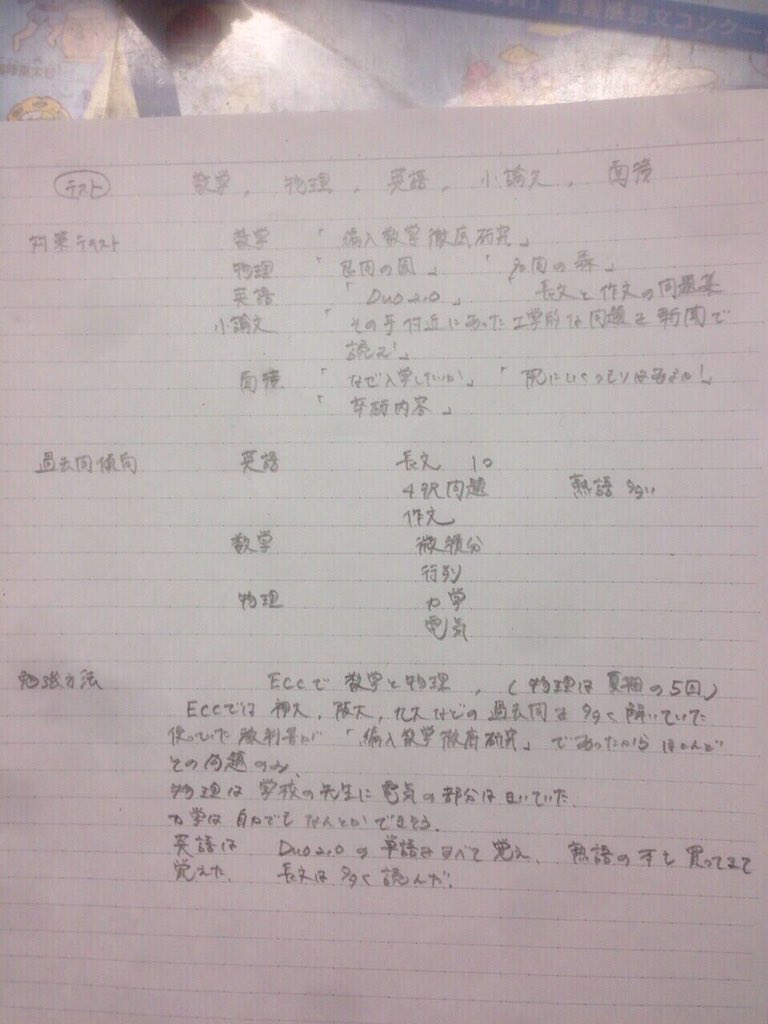 読書感想文コンクー
テスト 数学, 物理, 英語, 小論文, 面接
対策テキスト 数学 「編入数学徹底研究」
物理 「良問の風」 「名問の森」
英語 「Duo2.0」 「長文と作文の問題集
小論文 「その年付近にあった工学的な問題を新聞で
読む!」
面接 「なぜ入学したいか」 「院にいくつもりはあるか!」
「卒研内容」
過去問傾向 英語 長文 10
4択問題 熟語多い
作文
数学 微積分
行列
物理 力学
電気
勉強方法 Eccで数学と物理, (物理は夏期の5回)
Eccでは神大, 阪大, 九大などの過去問を多く解いていた
使っていた教科書が「編入数学徹底研究」であったからほとんど
その問題のみ.
物理は学校の先生に電気の部分は聞いていた.
力学は自力でもなんとかできそう.
英語は Duo2.0の単語をすべて覚え、熟語の本も買ってきて
覚えた. 長文は多く読んだ.